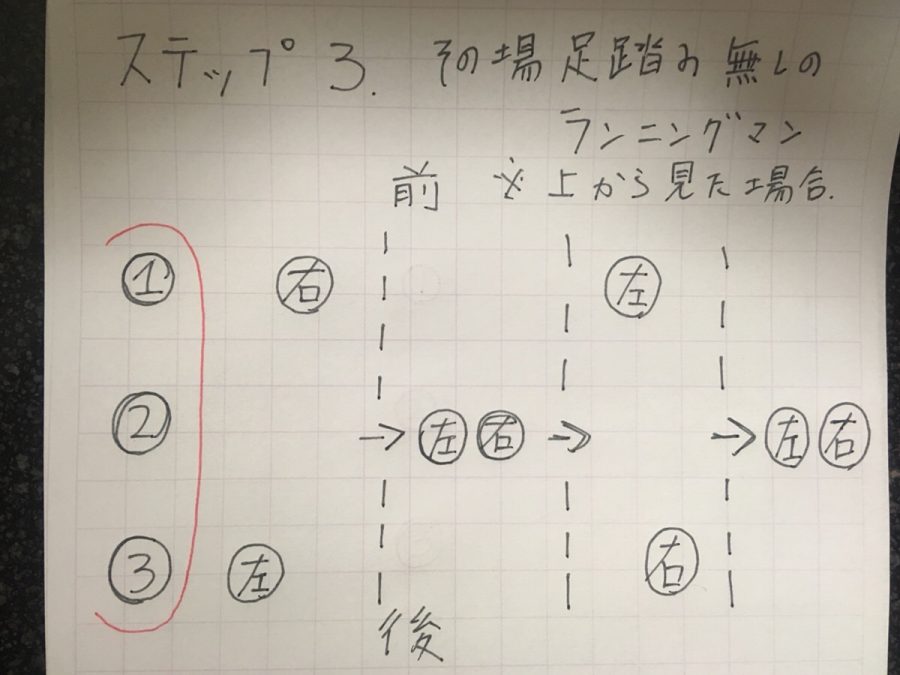 ステップ 3. その場足踏み無しの
ランニングマン
前 ※上から見た場合.
① 右 左
② → 左 右 → → 左 右
③ 左 右
後